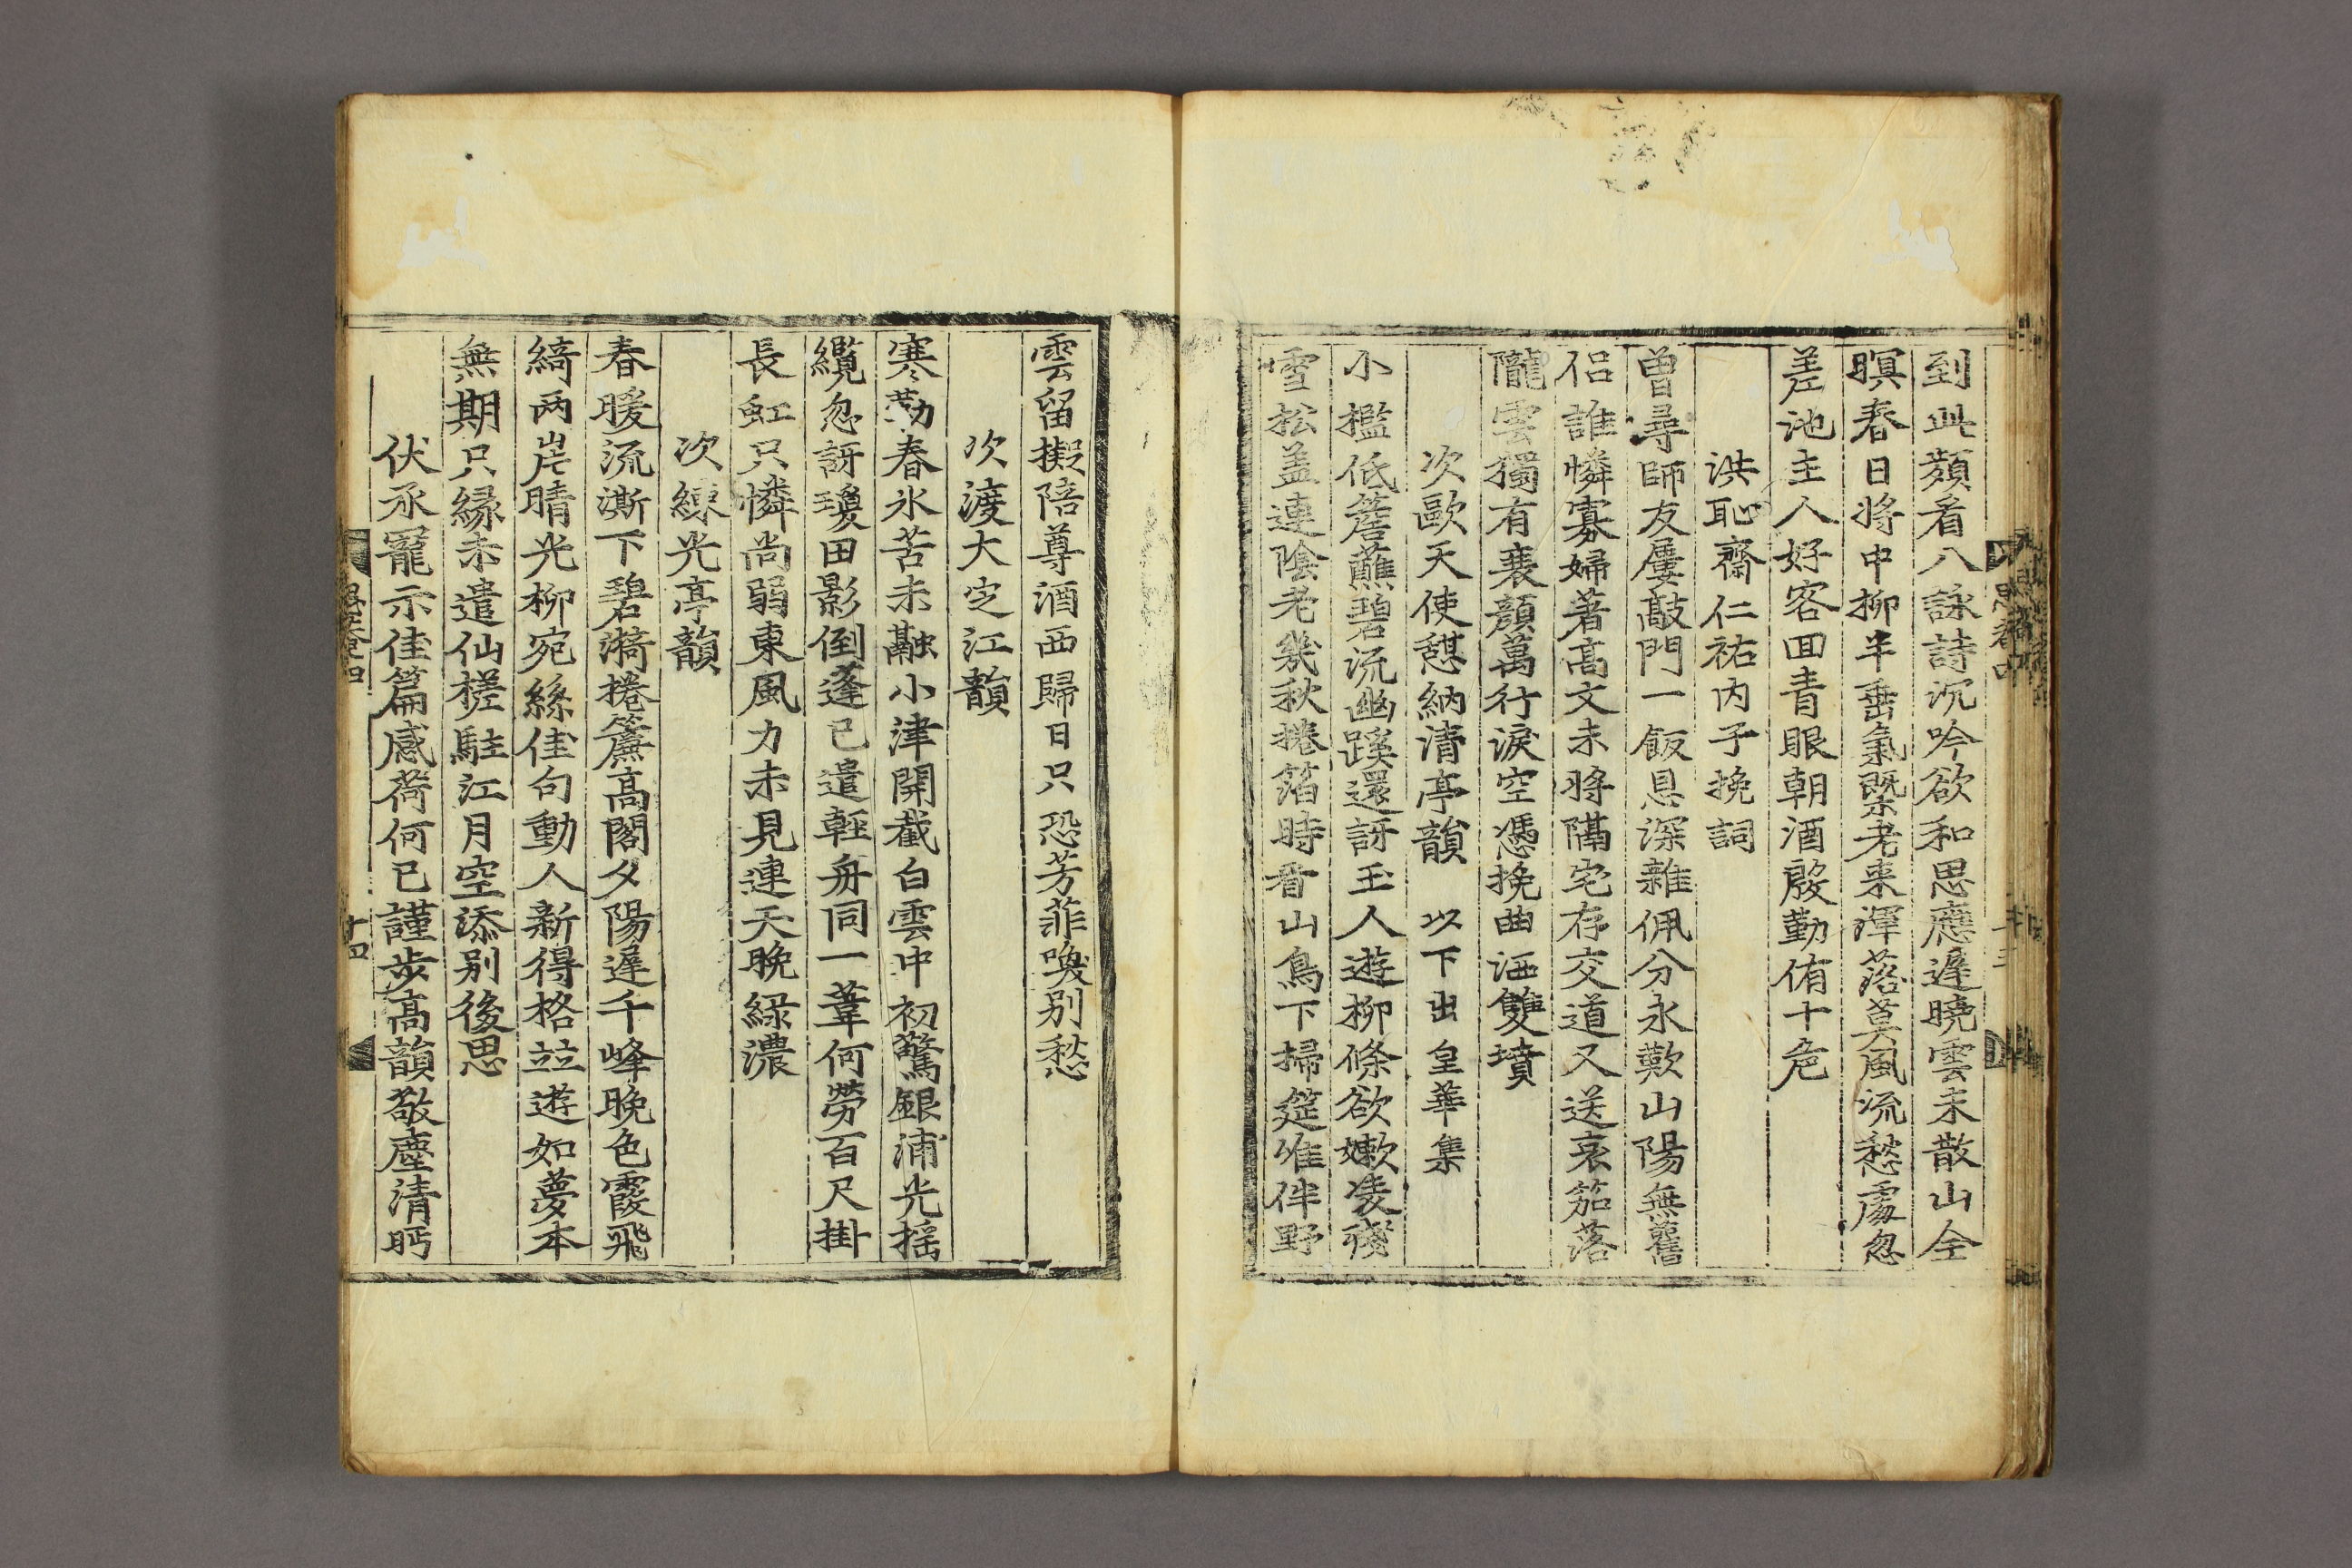 到此頻看八詠詩沉吟欲和思應遲曉雲未散山全
暝春日將中柳半垂氣槩老來渾落莫風流愁處忽
差池主人好客回青眼朝酒殷勤侑十巵
洪恥齋仁祐内子挽詞
曽尋師友屢敲門一飯恩深雜佩分永歎山陽無舊
侶誰憐寡婦著高文未將隔宅存交道又送哀笳落
隴雲獨有衰顔萬行淚空憑挽曲洒雙墳
次歐天使憇納清亭韻 以下出皇華集
小檻低簷蘸碧流幽蹊還訝玉人遊柳條欲嫰凌殘
雪松盖連陰老幾秋捲箔時看山鳥下掃筵唯伴野
雲留擬陪尊酒西歸日只恐芳菲喚别愁
次渡大定江韻
寒勒春氷苦未融小津開截白雲中初驚銀浦光摇
纜忽訝瓊田影倒蓬已遣輕舟同一葦何勞百尺掛
長虹只憐尚弱東風力未見連天晩綠濃
次練光亭韻
春暖流澌下碧漪捲簾高閣夕陽遲千峰晩色霞飛
綺兩岸晴光柳宛絲佳句動人新得格竝遊如夢本
無期只緣未遣仙槎駐江月空添别後思
伏承寵示佳篇感荷何已謹步高韻敬塵清眄
十四